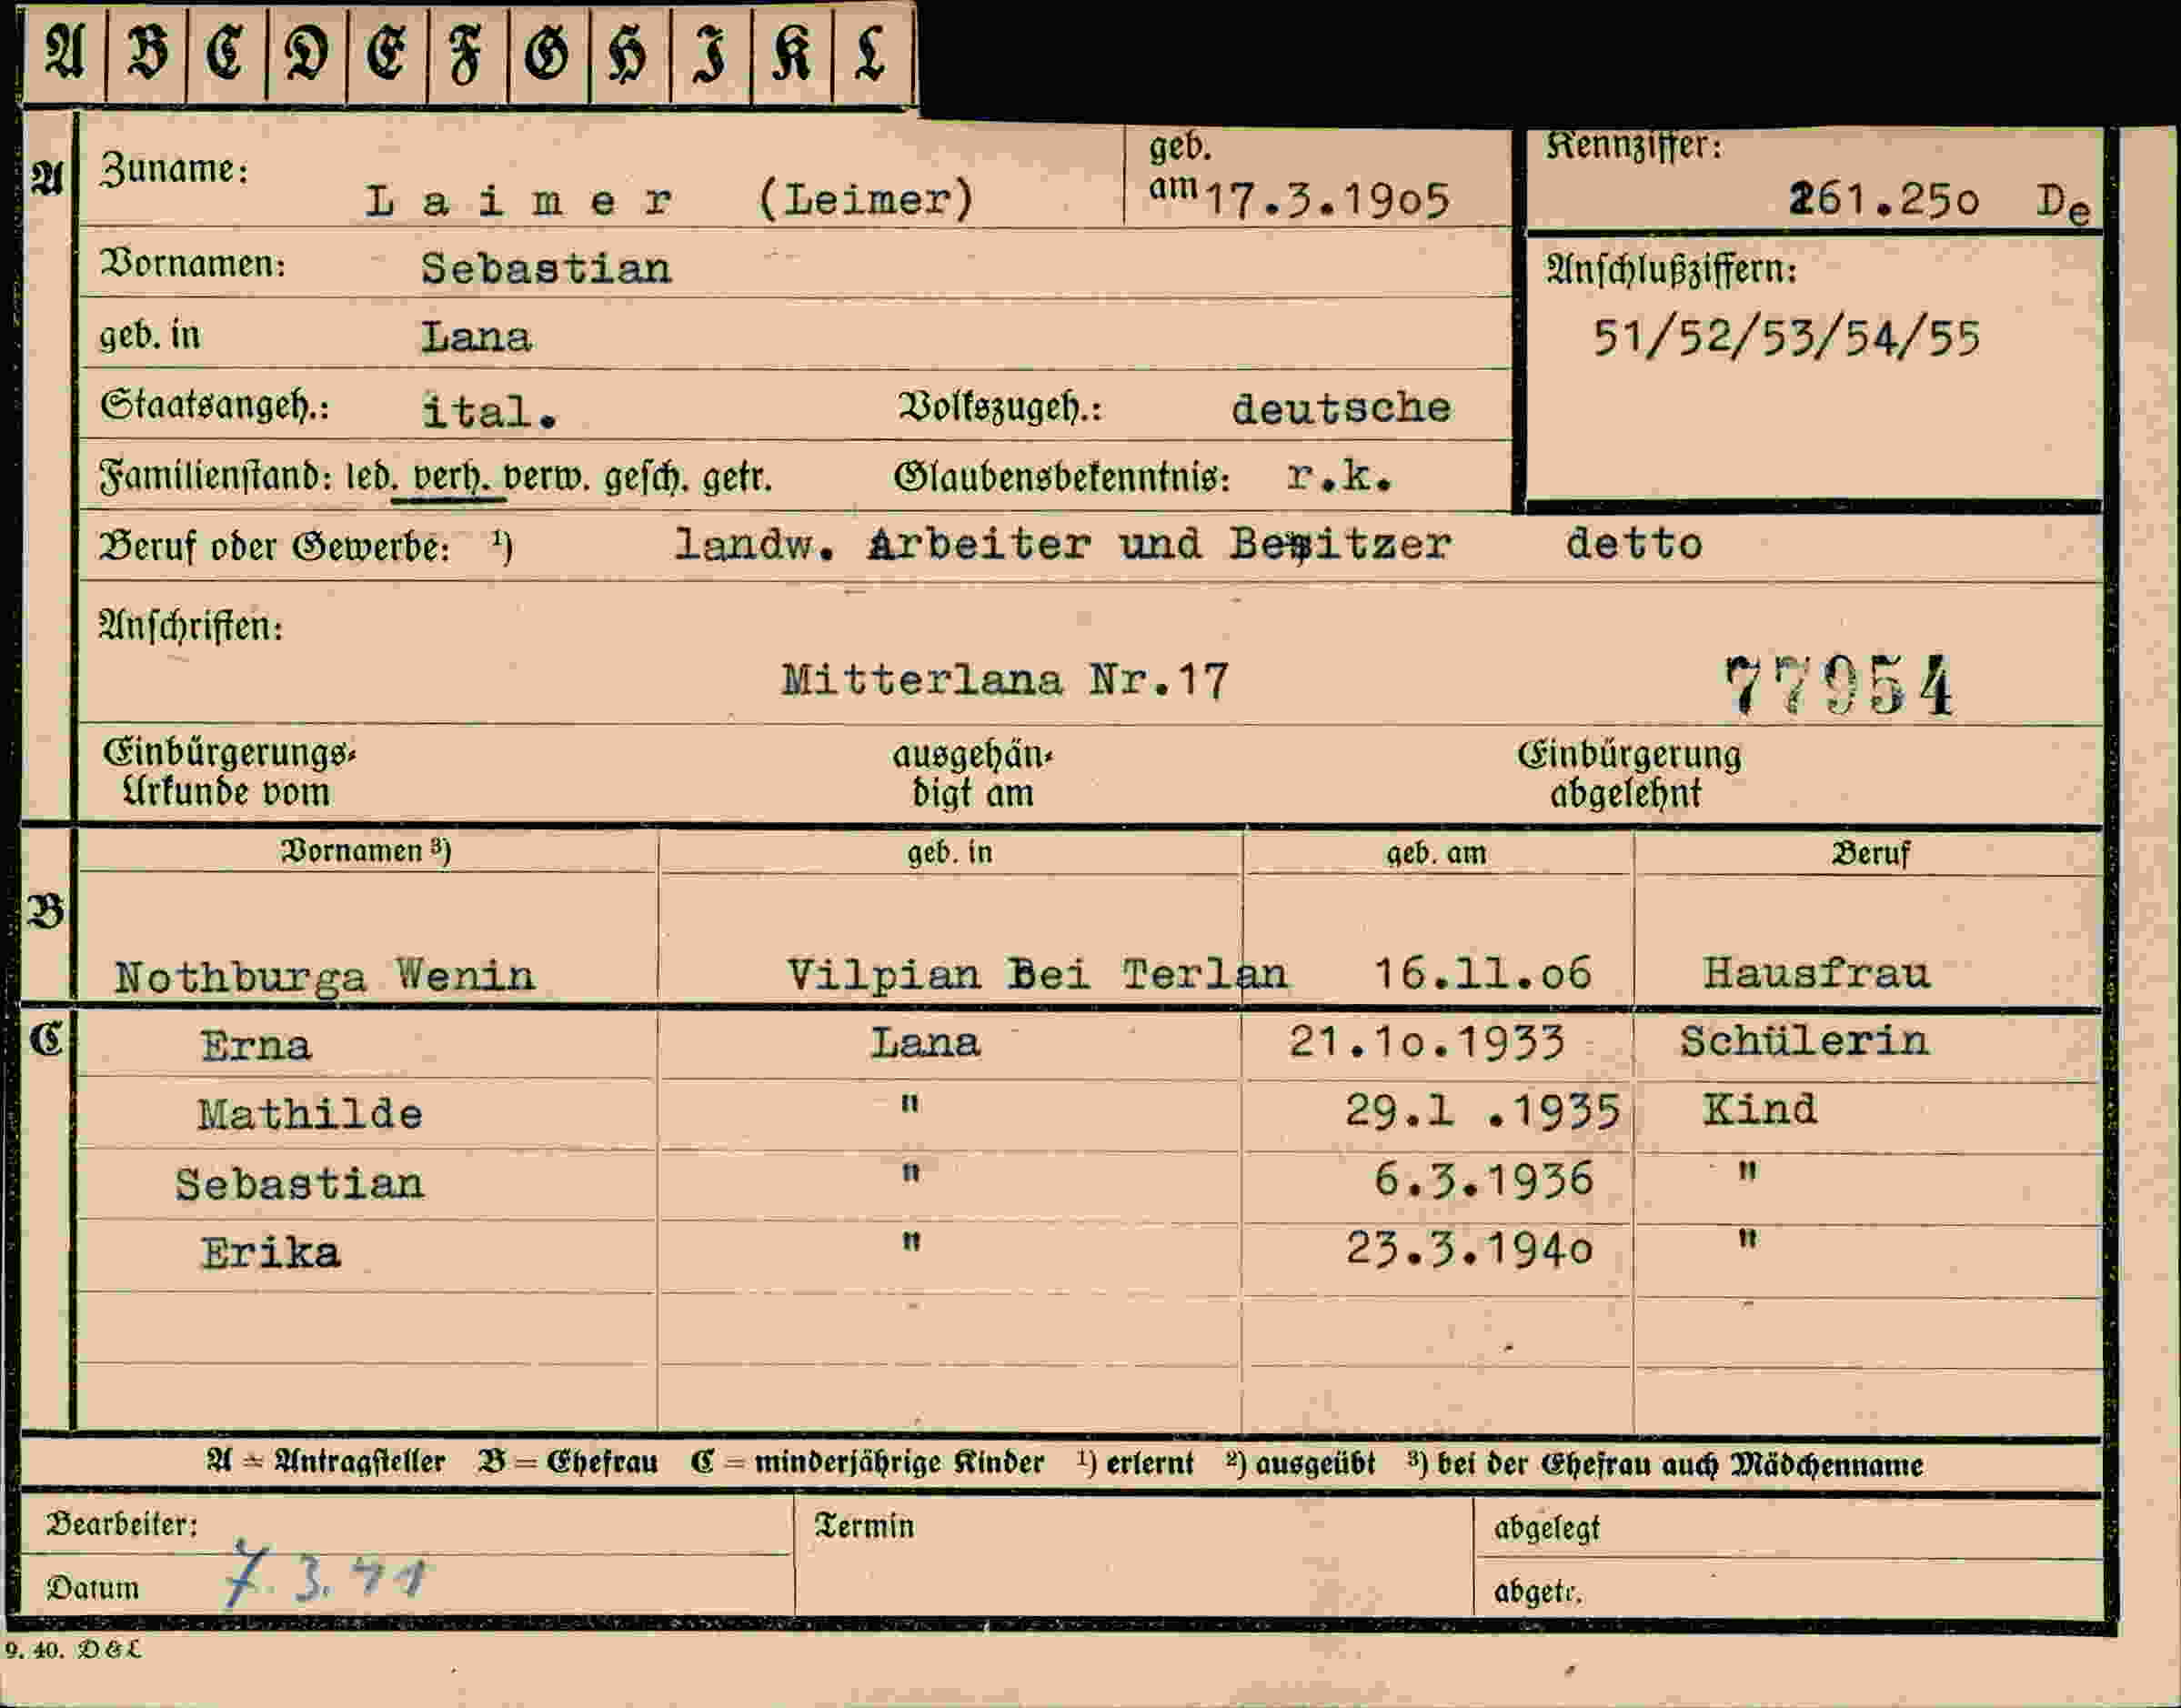 A B C D E F G H I K L
A Zuname: Laimer (Leimer) geb. am 17.3.1905 Kennziffer: 261.250 De
Vornamen: Sebastian Anschlußziffern:
geb. in Lana 51/52/53/54/55
Staatsangeh.: ital. Volkszugeh.: deutsche
Familienstand: led. verh. verw. gesch. getr. Glaubensbekenntnis: r.k.
Beruf oder Gewerbe: ¹) landw. Arbeiter und Besitzer detto
Anschriften:
Mitterlana Nr.17 77954
Einbürgerungs- ausgehän- Einbürgerung
Urkunde vom digt am abgelehnt
Vornamen ³) geb. in geb. am Beruf
B
Nothburga Wenin Vilpian Bei Terlan 16.11.06 Hausfrau
C Erna Lana 21.10.1933 Schülerin
Mathilde " 29.1 .1935 Kind
Sebastian " 6.3.1936 "
Erika " 23.3.1940 "
A = Antragsteller B = Ehefrau C = minderjährige Kinder ¹) erlernt ²) ausgeübt ³) bei der Ehefrau auch Mädchenname
Bearbeiter: Termin abgelegt
Datum 7.3.41 abgetr.
9. 40. D & L